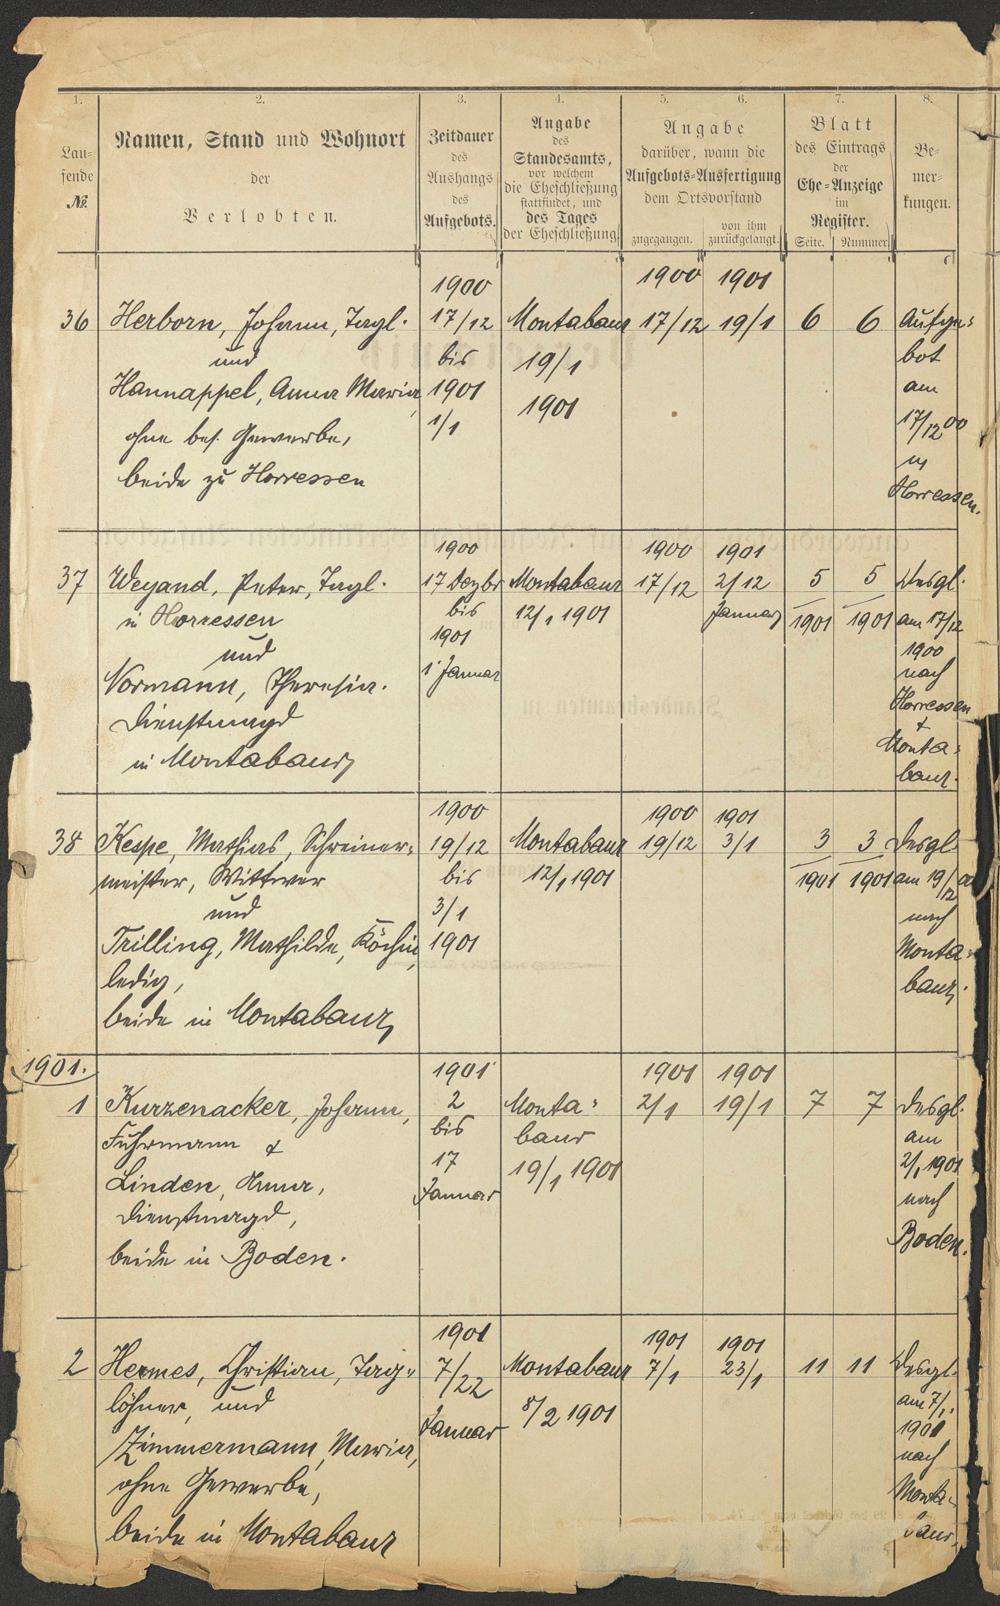 1. 2. 3. 4. 5. 6. 7. 8.
Lau-
fende
№.
Namen, Stand und Wohnort
der
Verlobten.
Zeitdauer
des
Aushangs
des
Aufgebots.
Angabe
des
Standesamts,
vor welchem
die Eheschließung
stattfindet, und
des Tages
der Eheschließung
Angabe
darüber, wann die
Aufgebots-Ausfertigung
dem Ortsvorstand
zugegangen.
von ihm
zurückgelangt.
Blatt
des Eintrags
der
Ehe-Anzeige
im
Register.
Seite. Nummer
Be-
mer-
kungen.
36
Herborn, Johann, Tagl.
und
Hannappel, Anna Maria
ohne bes. Gewerbe,
beide zu Horressen
1900
17/12
bis
1901
1/1
Montabaur
19/1
1901
1900
17/12
1901
19/1
6 6
Aufge=
bot
am
17/12 00
in
Horressen.
37
Weyand, Peter, Tagl.
in Horressen
und
Normann, Theresia.
Dienstmagd
in Montabaur
1900
17 Dezbr
bis
1901
1 Januar
Montabaur
12/1 1901
1900
17/12
1901
2/12
Januar
5 5
1901 1901
Desgl.
am 17/12
1900
nach
Horressen
+
Monta=
baur.
38
Kespe, Mathias, Schreiner=
meister, Wittwer
und
Trilling, Mathilde, Köchin
ledig,
beide in Montabaur
1900
19/12
bis
3/1
1901
Montabaur
12/1 1901
1900
19/12
1901
3/1
3 3
1901 1901
Desgl.
am 19/12 00
nach
Monta=
baur.
1901.
1
Kurzenacker, Johann,
Fuhrmann &
Linden, Anna,
Dienstmagd,
beide in Boden.
1901
2
bis
17
Januar
Monta=
baur
19/1 1901
1901
2/1
1901
19/1
7 7
Desgl.
am
2/1 1901
nach
Boden.
2
Hermes, Christian, Tag=
löhner, und
Zimmermann, Maria,
ohne Gewerbe,
beide in Montabaur
1901
7/22
Januar
Montabaur
8/2 1901
1901
7/1
1901
23/1
11 11
Desgl.
am 7/1.
1901
nach
Monta=
baur.